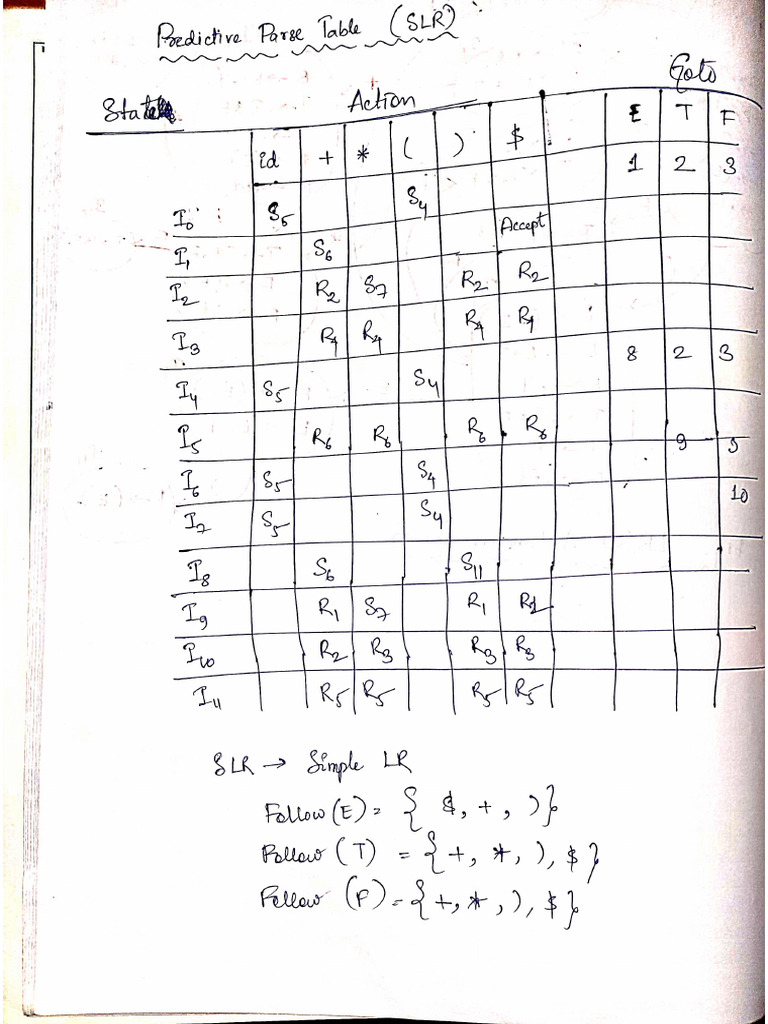 Predictive Parse Table (SLR)
Goto
State Action
id + * ( ) $ E T F
1 2 3
I0 S5 S4
I1 S6 Accept
I2 R2 S7 R2 R2
I3 R4 R4 R4 R4
8 2 3
I4 S5 S4
I5 R6 R6 R6 R6
9 3
I6 S5 S4
10
I7 S5 S4
I8 S6 S11
I9 R1 S7 R1 R1
I10 R2 R3 R3 R3
I11 R5 R5 R5 R5
SLR → Simple LR
Follow (E) = { $, + , ) }
Follow (T) = { +, *, ), $ }
Follow (F) = { +, *, ), $ }